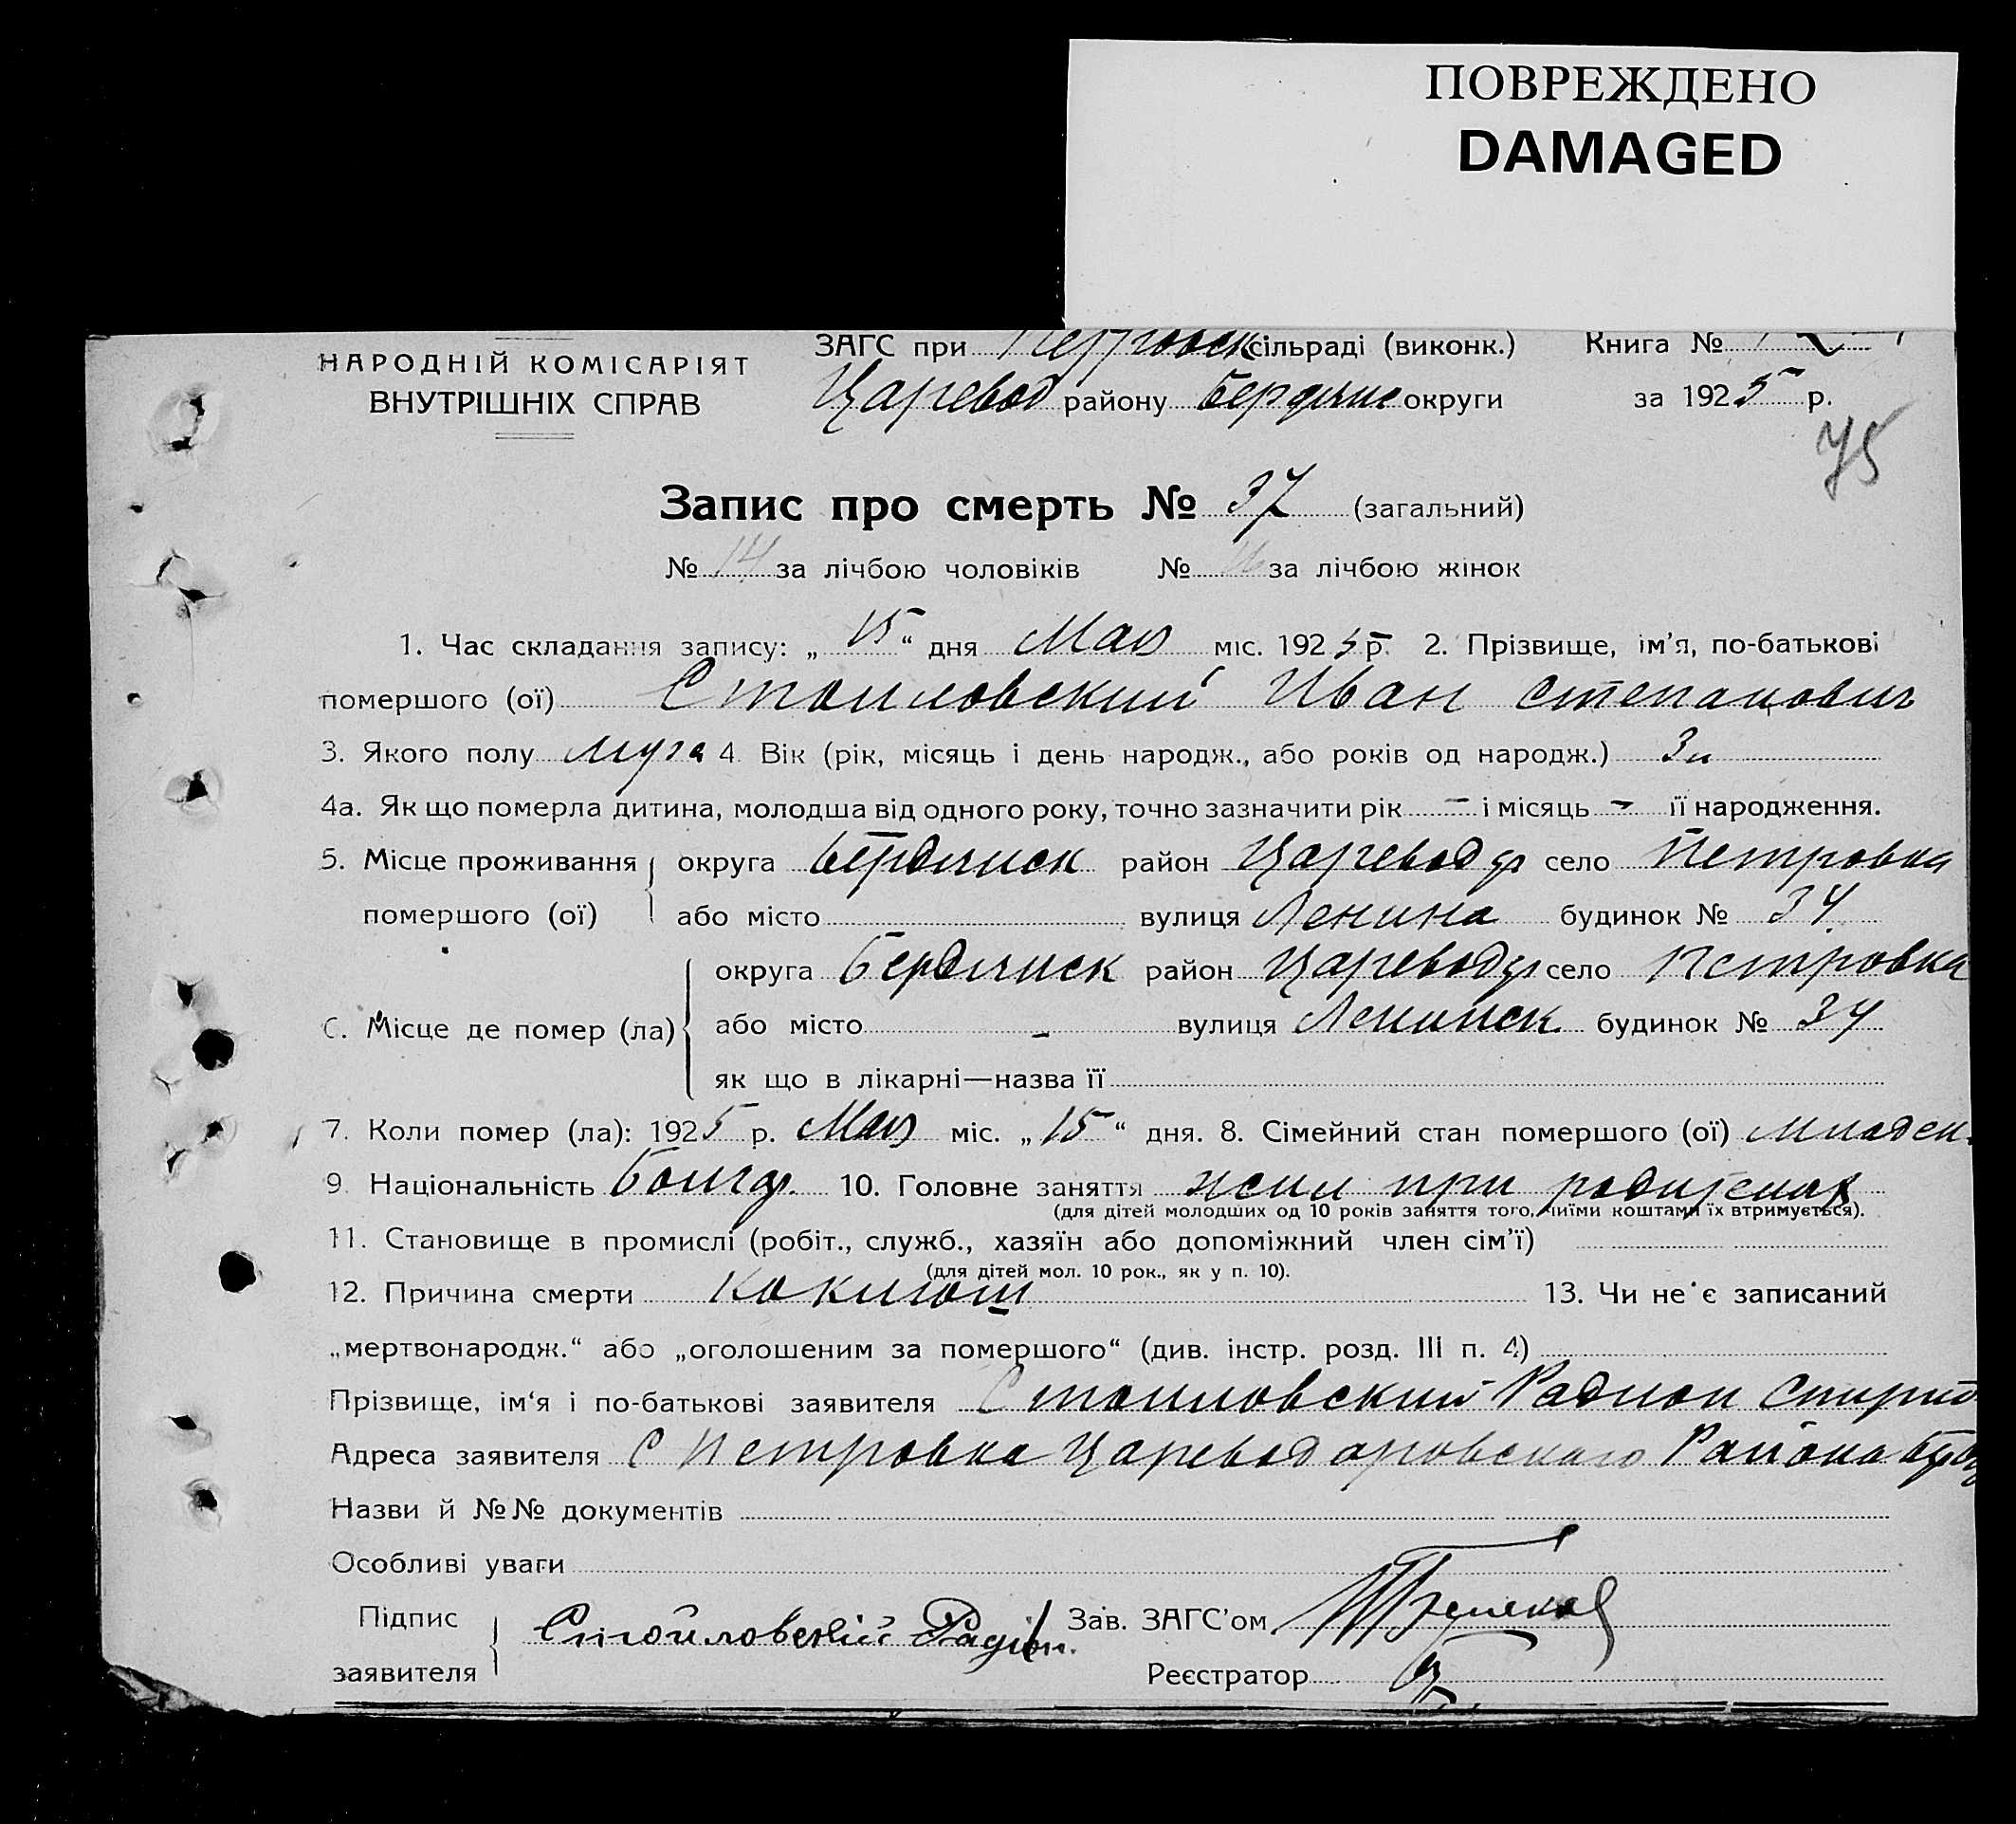 ПОВРЕЖДЕНО
DAMAGED
НАРОДНІЙ КОМІСАРІЯТ
ВНУТРІШНІХ СПРАВ
ЗАГС при Петровск сільраді (виконк.) Книга №
Царевод району Бердянс округи за 1925 р.
75
Запис про смерть № 37 (загальний)
№ 14 за лічбою чоловіків № за лічбою жінок
1. Час складання запису: „ 15 “ дня Мая міс. 1925 р. 2. Прізвище, ім’я, по-батькові
помершого (ої) Стоиловский Иван Степанович
3. Якого полу 4. Вік (рік, місяць і день народж., або років од народж.)
4а. Як що померла дитина, молодша від одного року, точно зазначити рік – і місяць – її народження.
5. Місце проживання округа Бердянск район Цареводар село Петровка
помершого (ої) або місто вулиця Ленина будинок № 34
округа Бердянск район Цареводар село Петровка
6. Місце де помер (ла) або місто – вулиця Ленинск будинок № 34
як що в лікарні—назва її
7. Коли помер (ла): 1925 р. Мая міс. „ 15 “ дня. 8. Сімейний стан помершого (ої) младен.
9. Національність Болгар. 10. Головне заняття при родителях
(для дітей молодших од 10 років заняття того, чиїми коштами їх втримується).
11. Становище в промислі (робіт., служб., хазяїн або допоміжний член сім’ї)
(для дітей мол. 10 рок., як у п. 10).
12. Причина смерти Коклюш 13. Чи не є записаний
„мертвонародж.“ або „оголошеним за помершого“ (див. інстр. розд. III п. 4)
Прізвище, ім‘я і по-батькові заявителя Стоиловский Радион Спирид
Адреса заявителя С Петровка Цареводаровскаго Района
Назви й №№ документів
Особливі уваги
Підпис заявителя Стойловскій Радіон. Зав. ЗАГС’ом
Реєстратор